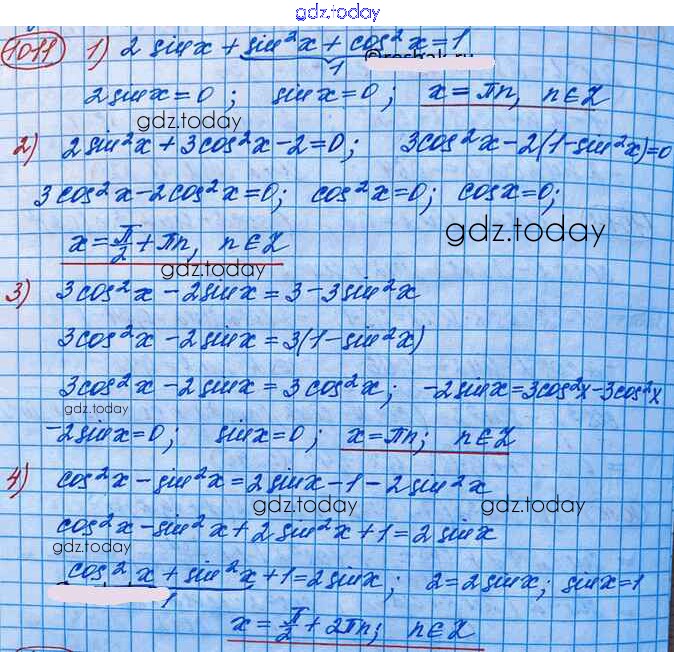 gdz.today
1011 1) 2 sinx + sin²x + cos²x = 1
1
@reshak.ru
2sinx = 0; sinx = 0; x = πn, n∈Z
gdz.today
2) 2sin²x + 3cos²x - 2 = 0; 3cos²x - 2(1 - sin²x) = 0
3cos²x - 2cos²x = 0; cos²x = 0; cosx = 0;
x = π/2 + πn, n∈Z
gdz.today
gdz.today
3) 3cos²x - 2sinx = 3 - 3sin²x
3cos²x - 2sinx = 3(1 - sin²x)
3cos²x - 2sinx = 3cos²x; -2sinx = 3cos²x - 3cos²x
gdz.today
-2sinx = 0; sinx = 0; x = πn; n∈Z
4) cos²x - sin²x = 2sinx - 1 - 2sin²x
gdz.today gdz.today
cos²x - sin²x + 2sin²x + 1 = 2sinx
gdz.today
cos²x + sin²x + 1 = 2sinx; 2 = 2sinx; sinx = 1
1
x = π/2 + 2πn; n∈Z